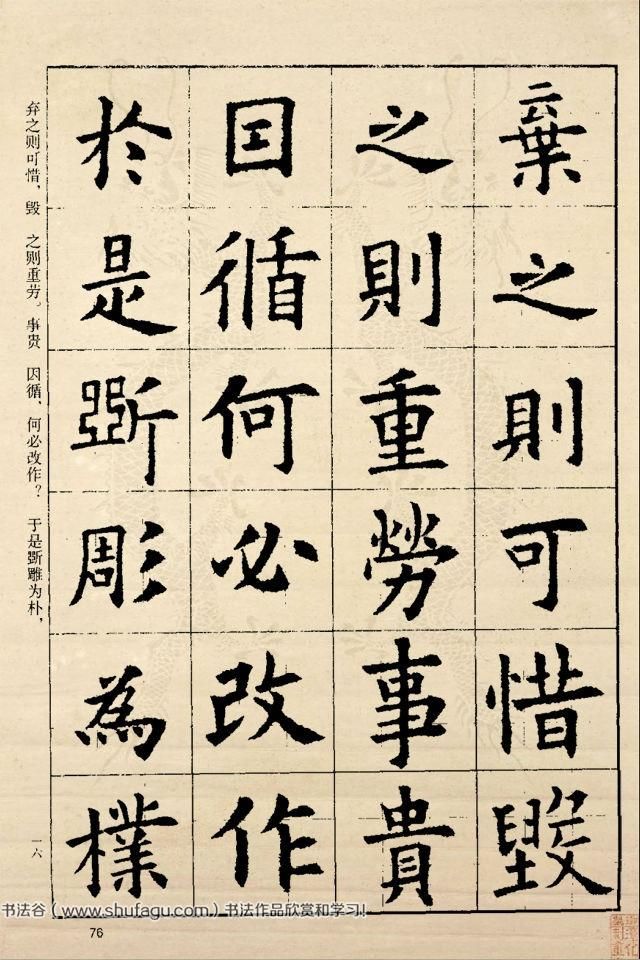 棄之則可惜毀
之則重勞事貴
因循何必改作
於是斵彫為樸
弃之则可惜，毁　之则重劳。事贵　因循，何必改作？　于是斵雕为朴，
一六
书法谷（www.shufagu.com）书法作品欣赏和学习！
76